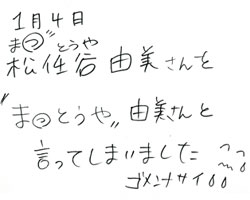 1月4日
まつとうや
松任谷由美さんを
"まつとうや"由美さんと
言ってしまいました
ゴメンナサイ